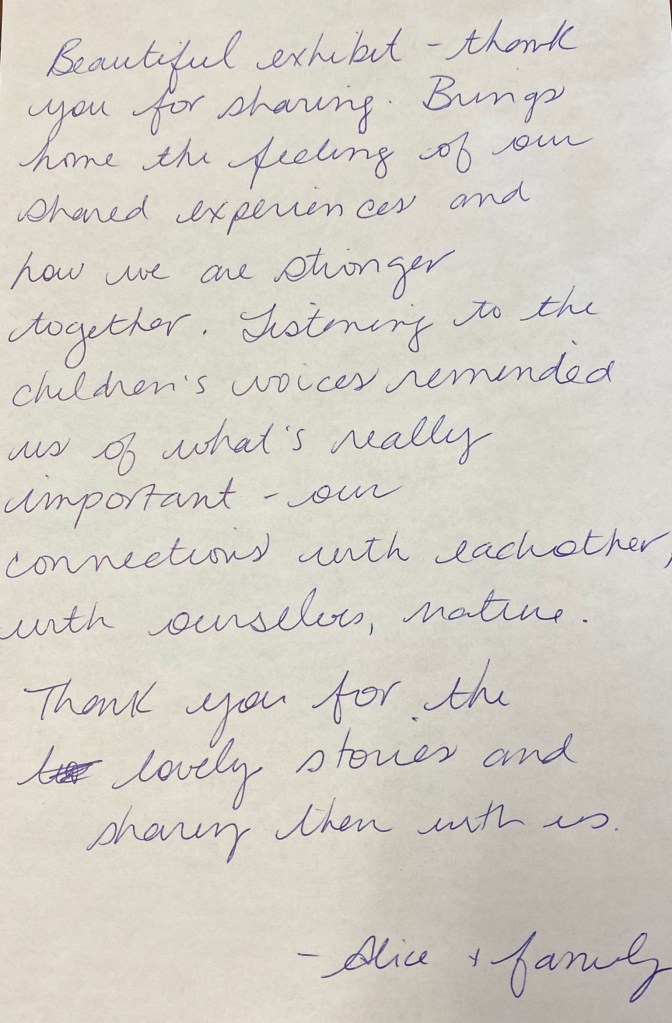 Beautiful exhibit - thank
you for sharing. Brings
home the feeling of our
shared experiences and
how we are stronger
together. Listening to the
children's voices reminded
us of what's really
important - our
connections with eachother,
with ourselves, nature.
Thank you for the
lovely stories and
sharing them with us.
- Alice + family